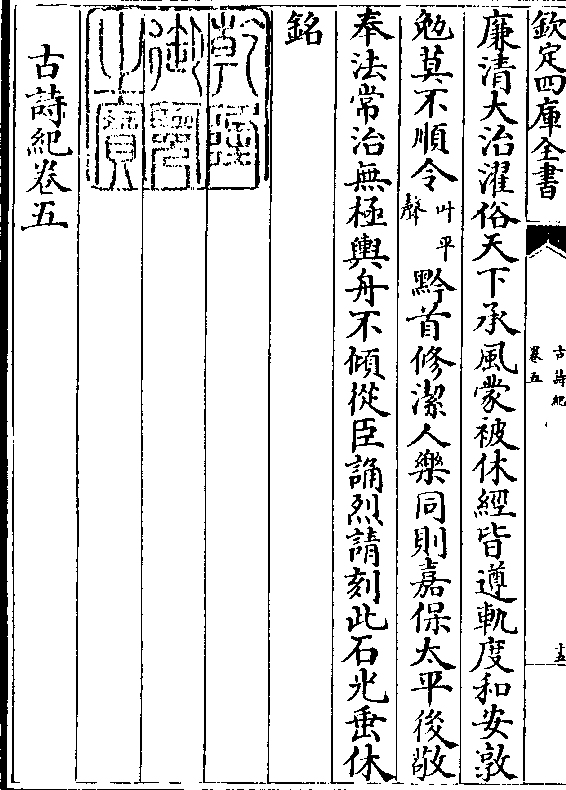 欽定四庫全書
古詩紀
卷五
十五
廉清大治濯俗天下承風蒙被休經皆遵軌度和安敦
勉莫不順令叶平聲黔首修潔人樂同則嘉保太平後敬
奉法常治無極輿舟不傾從臣誦烈請刻此石光垂休
銘
乾隆御覽之寶
古詩紀卷五